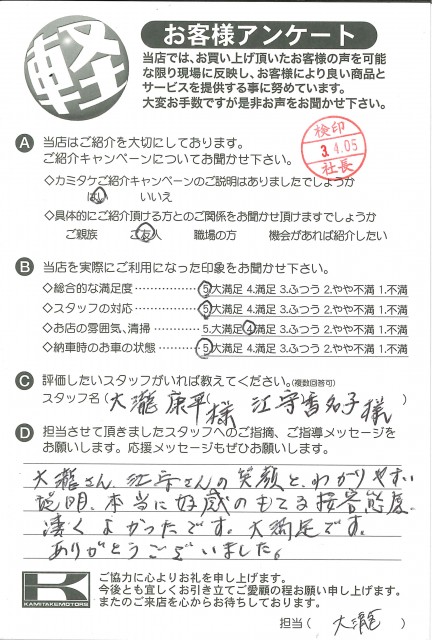 軽
お客様アンケート
当店では、お買い上げ頂いたお客様の声を可能
な限り現場に反映し、お客様により良い商品と
サービスを提供する事に努めています。
大変お手数ですが是非お声をお聞かせ下さい。
検印
3.4.05
社長
A 当店はご紹介を大切にしております。
ご紹介キャンペーンについてお聞かせ下さい。
◇カミタケご紹介キャンペーンのご説明はありましたでしょうか
はい いいえ
◇具体的にご紹介頂ける方とのご関係をお聞かせ頂けますでしょうか
ご親族 ご友人 職場の方 機会があれば紹介したい
B 当店を実際にご利用になった印象をお聞かせ下さい。
◇総合的な満足度……………5.大満足 4.満足 3.ふつう 2.やや不満 1.不満
◇スタッフの対応……………5.大満足 4.満足 3.ふつう 2.やや不満 1.不満
◇お店の雰囲気、清掃………5.大満足 4.満足 3.ふつう 2.やや不満 1.不満
◇納車時のお車の状態………5.大満足 4.満足 3.ふつう 2.やや不満 1.不満
C 評価したいスタッフがいれば教えてください。(複数回答可)
スタッフ名(大瀧 康平様 江守香名子様)
D 担当させて頂きましたスタッフへのご指摘、ご指導メッセージを
お願いします。応援メッセージもぜひお願いします。
大瀧さん、江守さんの笑顔と、わかりやすい
説明、本当に好感のもてる接客態度、
凄くよかったです。大満足です。
ありがとうございました。
K
KAMITAKEMOTORS
ご協力に心よりお礼を申し上げます。
今後とも宜しくお引き立てご愛顧の程お願い申し上げます。
またのご来店を心からお待ちしております。
担当(大瀧)